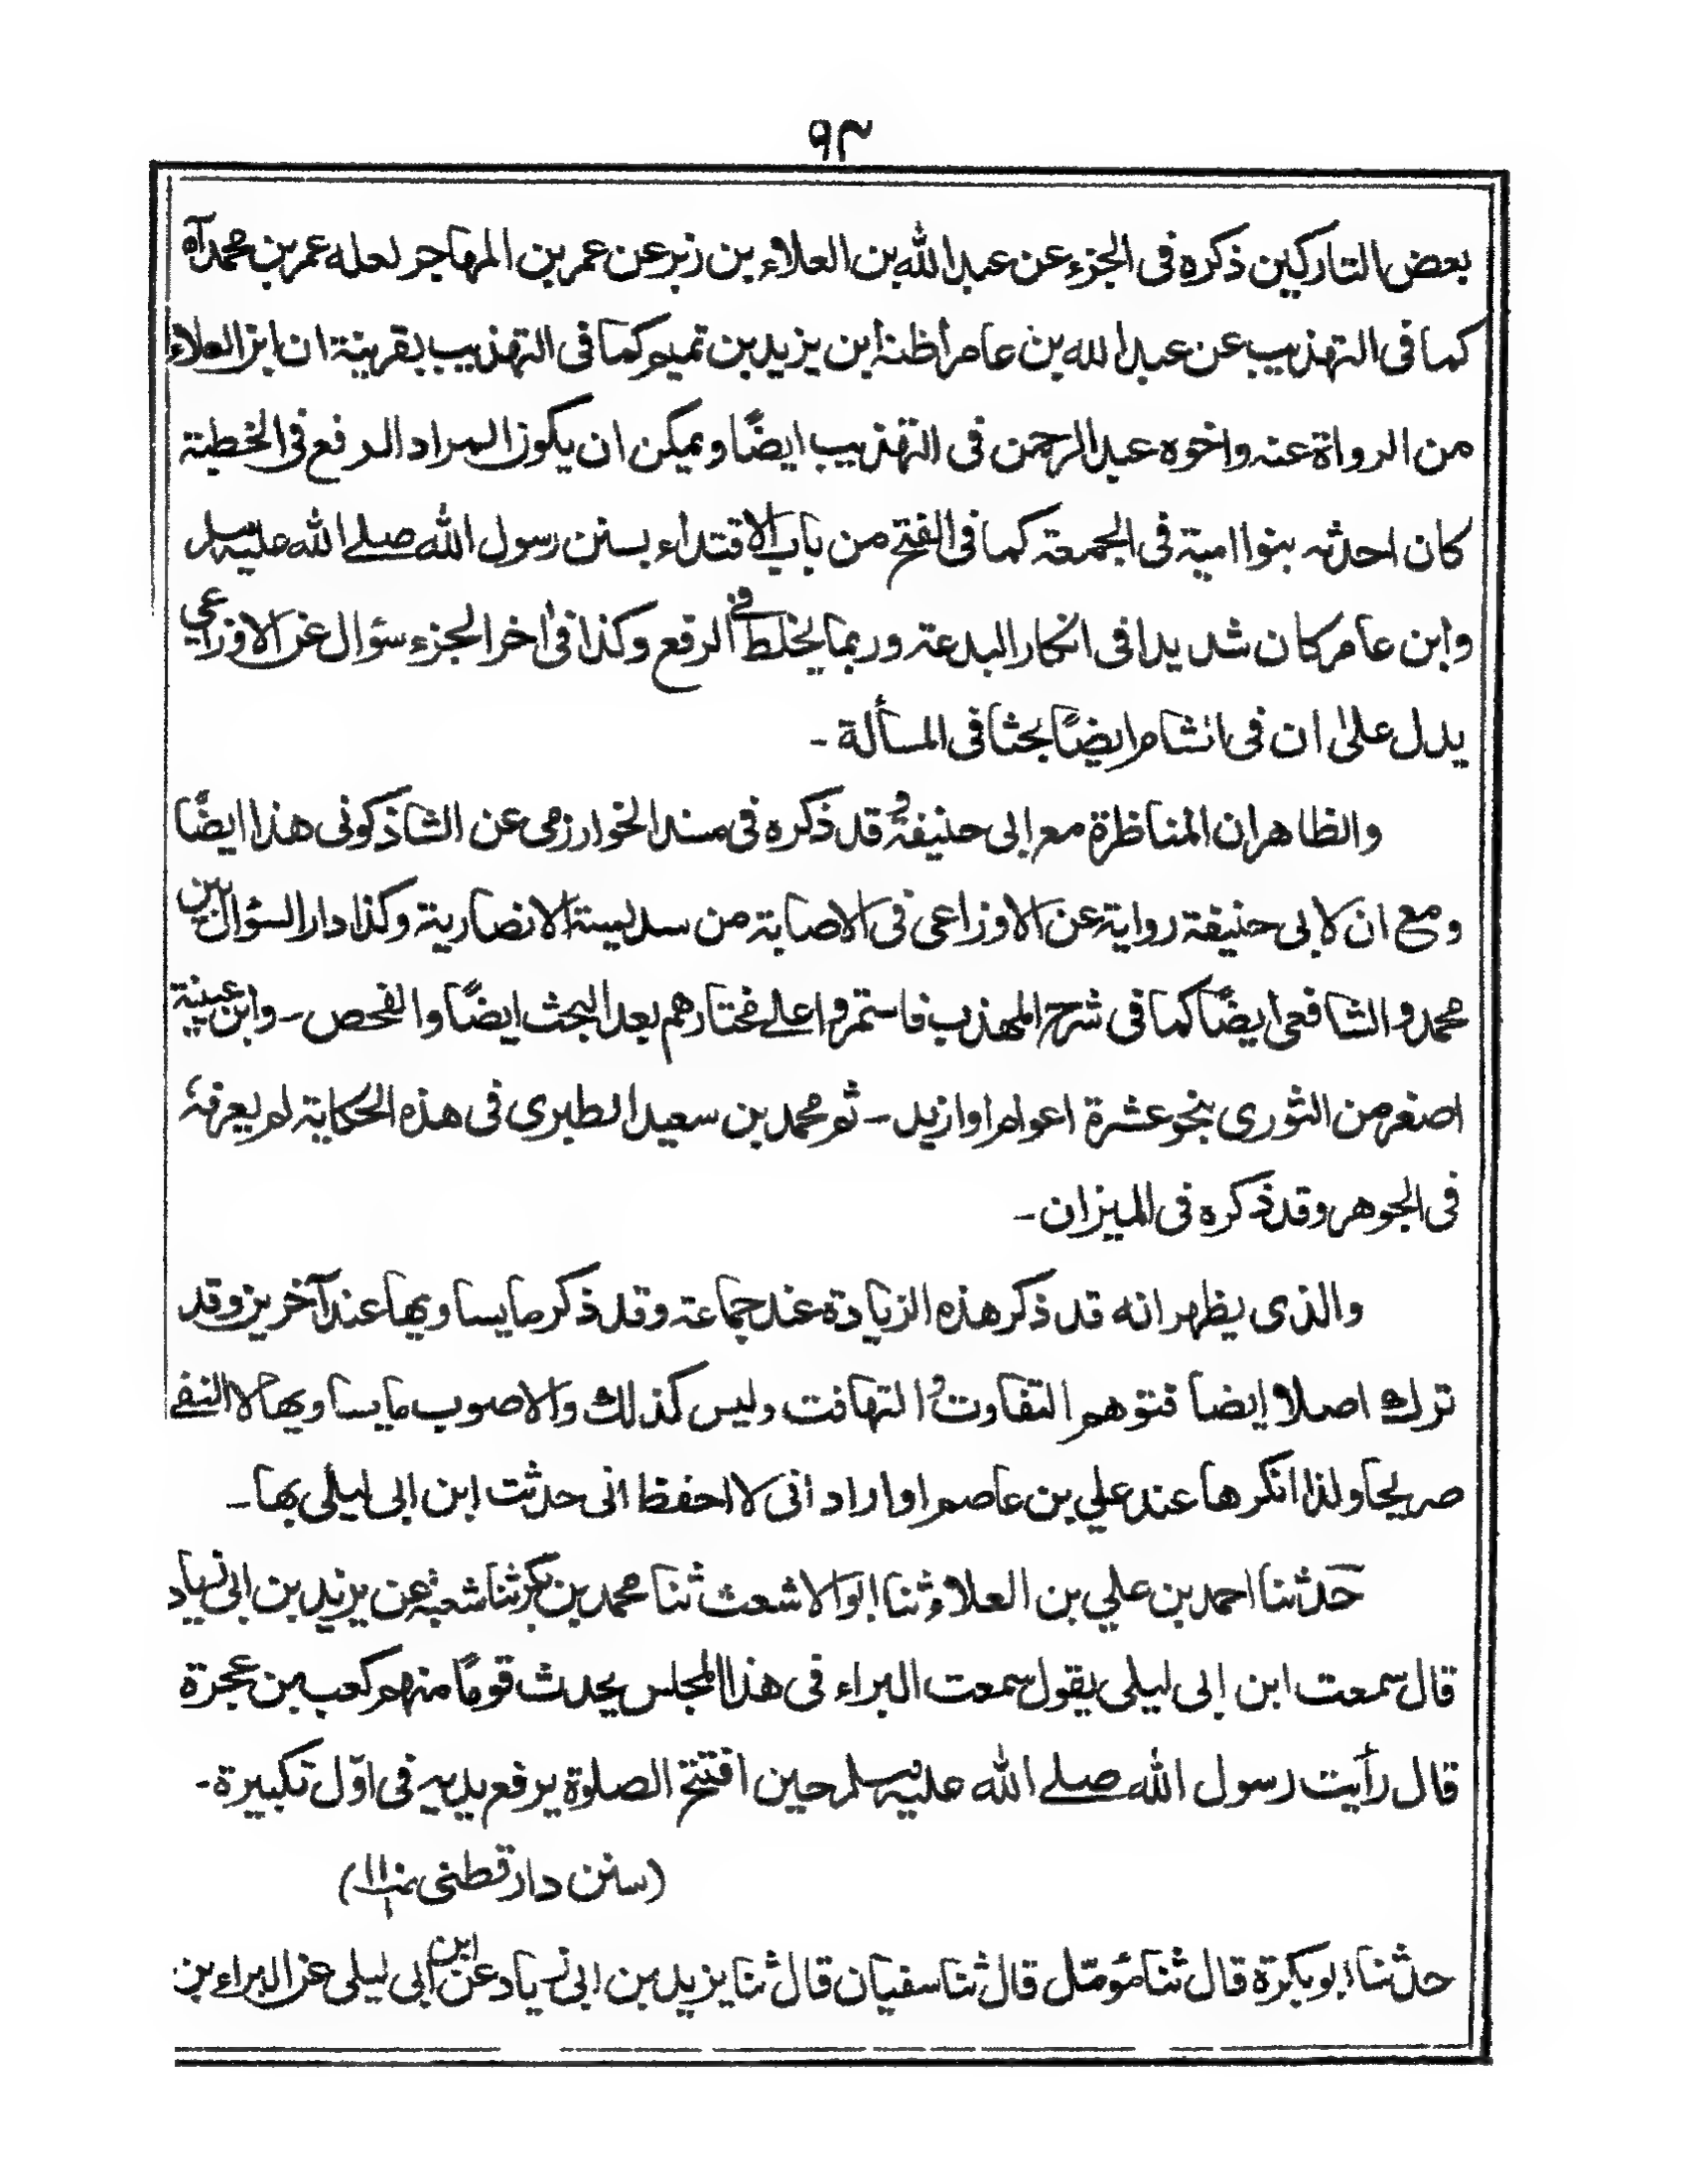 ٩٢
بعض التاركين ذكره فى الجزء عن عبد الله بن العلاء بن زبر عن عمر بن المهاجر لعله عمر بن محمد آه
كما فى التهذيب عن عبد الله بن عامر أظنه ابن يزيد بن تميم كما فى التهذيب بقرينة ان ابن العلاء
من الرواة عنه واخوه عبد الرحمن فى التهذيب ايضًا ويمكن ان يكون المراد الرفع فى الخطبة
كان احدثه بنوا امية فى الجمعة كما فى الفتح من باب الاقتداء بسنن رسول الله صلے الله عليه وسلم
وابن عامر كان شديدا فى انكار البدعة وربما يخلط فى الرفع وكذا فى اٰخر الجزء سؤال عن الاوزاعي
يدل علىٰ ان فى الشام ايضًا بحثا فى المسألة -
والظاهر ان المناظرة مع ابى حنيفةؒ وقد ذكره فى مسند الخوارزمى عن الشاذكونى هذا ايضًا
ومع ان لابى حنيفة رواية عن الاوزاعى فى الاصابة من سديسة الانصارية وكذا دار السؤال بين
محمد والشافعى أيضًا كما فى شرح المهذب فاستمروا علے مختارهم بعد البحث ايضًا والفحص - وابن عيينة
اصغر من الثورى بنحو عشرة اعوام او ازيد - ثم محمد بن سعيد الطبرى فى هذه الحكاية لم يعرفهٗ
فى الجوهر وقد ذكره فى الميزان -
والذى يظهر انه قد ذكر هذه الزيادة عند جماعة وقد ذكر ما يساويها عند آخرين وقد
ترك اصلا ايضا فتوهم التفاوت والتهافت وليس كذلك والاصوب ما يساويها لا النفے
صريحا ولذا انكرها عند علي بن عاصم او اراد انى لا احفظ انى حدثت ابن ابى ليلٰى بها -
حدثنا احمد بن علي بن العلاء ثنا ابو الاشعث ثنا محمد بن بكر ثنا شعبة عن يزيد بن ابى زياد
قال سمعت ابن ابى ليلى يقول سمعت البراء فى هذا المجلس يحدث قومًا منهم كعب بن عجرة
قال رأيت رسول الله صلے الله عليه وسلم حين افتتح الصلوة يرفع يديه فى اوّل تكبيرة -
(سنن دار قطنى ١١٠)
حدثنا ابو بكرة قال ثنا مؤمّل قال ثنا سفيان قال ثنا يزيد بن ابى زياد عن ابن أبى ليلى عن البراء بن